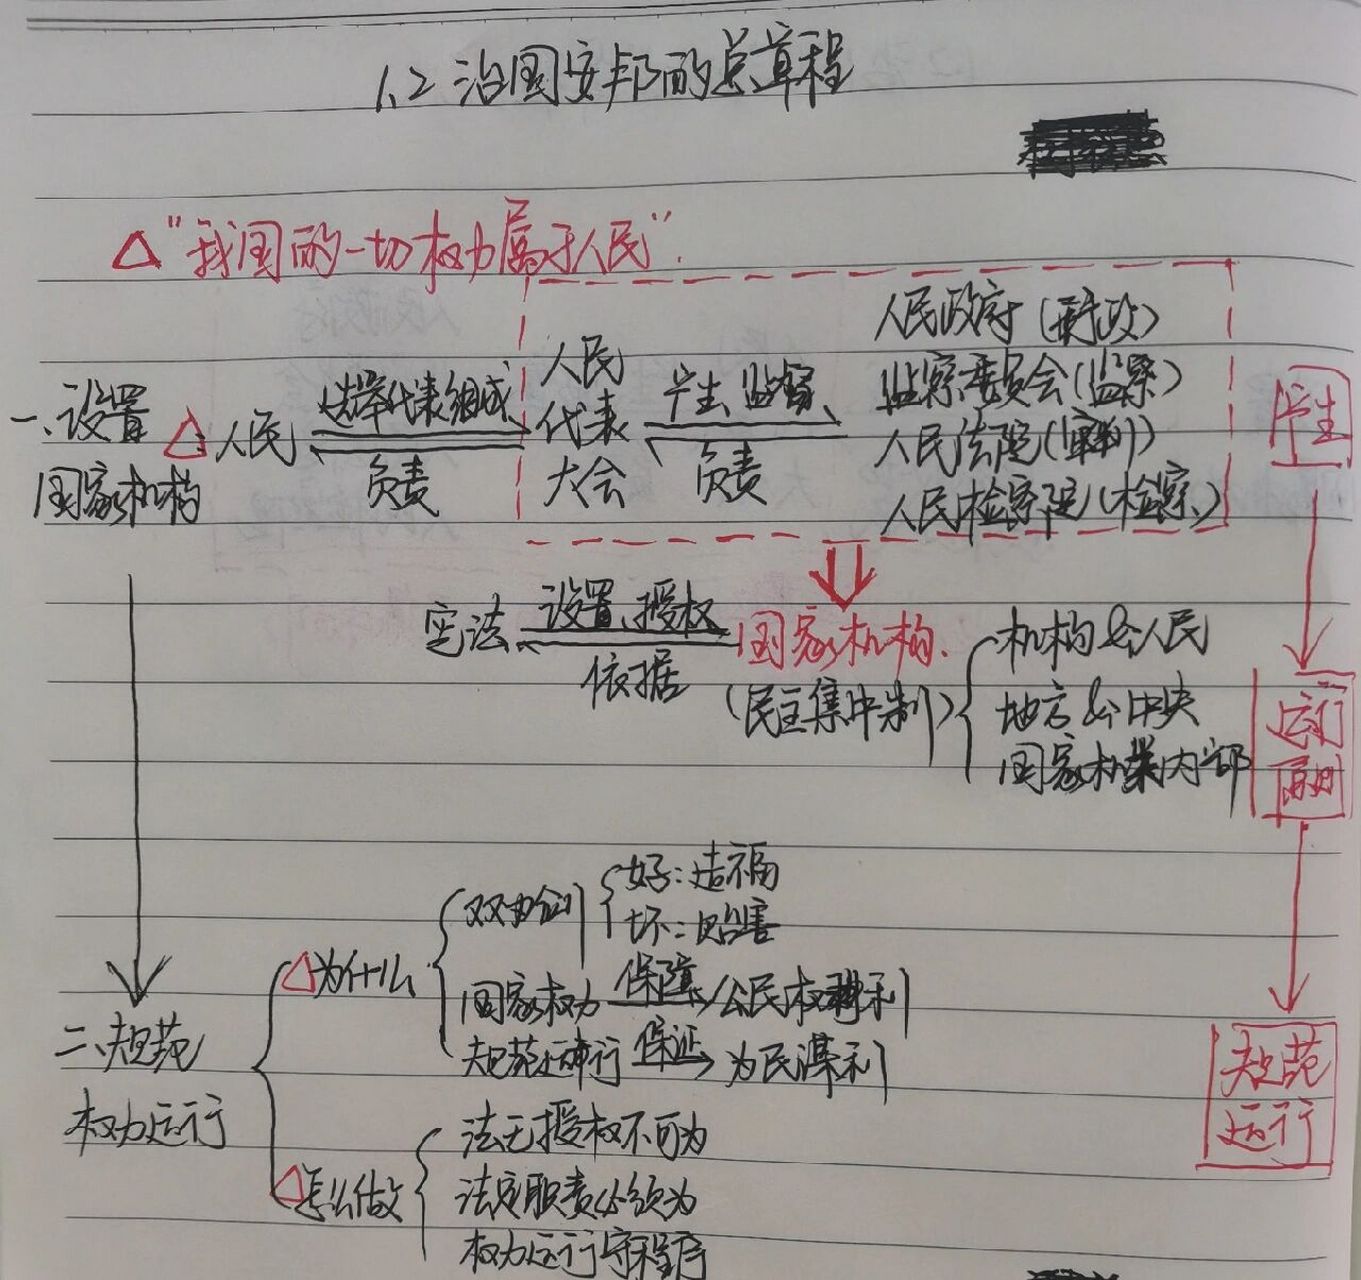 1.2 治国安邦的总章程
△"我国的一切权力属于人民".
一、设置
国家机构
△人民
选举代表组成
负责
人民
代表
大会
产生、监督
负责
人民政府(行政)
监察委员会(监察)
人民法院(审判)
人民检察院(检察)
产生
宪法
设置、授权
依据
国家机构.
(民主集中制)
机构&人民
地方&中央
国家机构内部
运行
原则
二、规范
权力运行
△为什么
双刃剑
好:造福
坏:贻害
国家权力 保障 公民权利
规范运行 保证 为民谋利
△怎么做
法无授权不可为
法定职责必须为
权力运行守程序
规范
运行